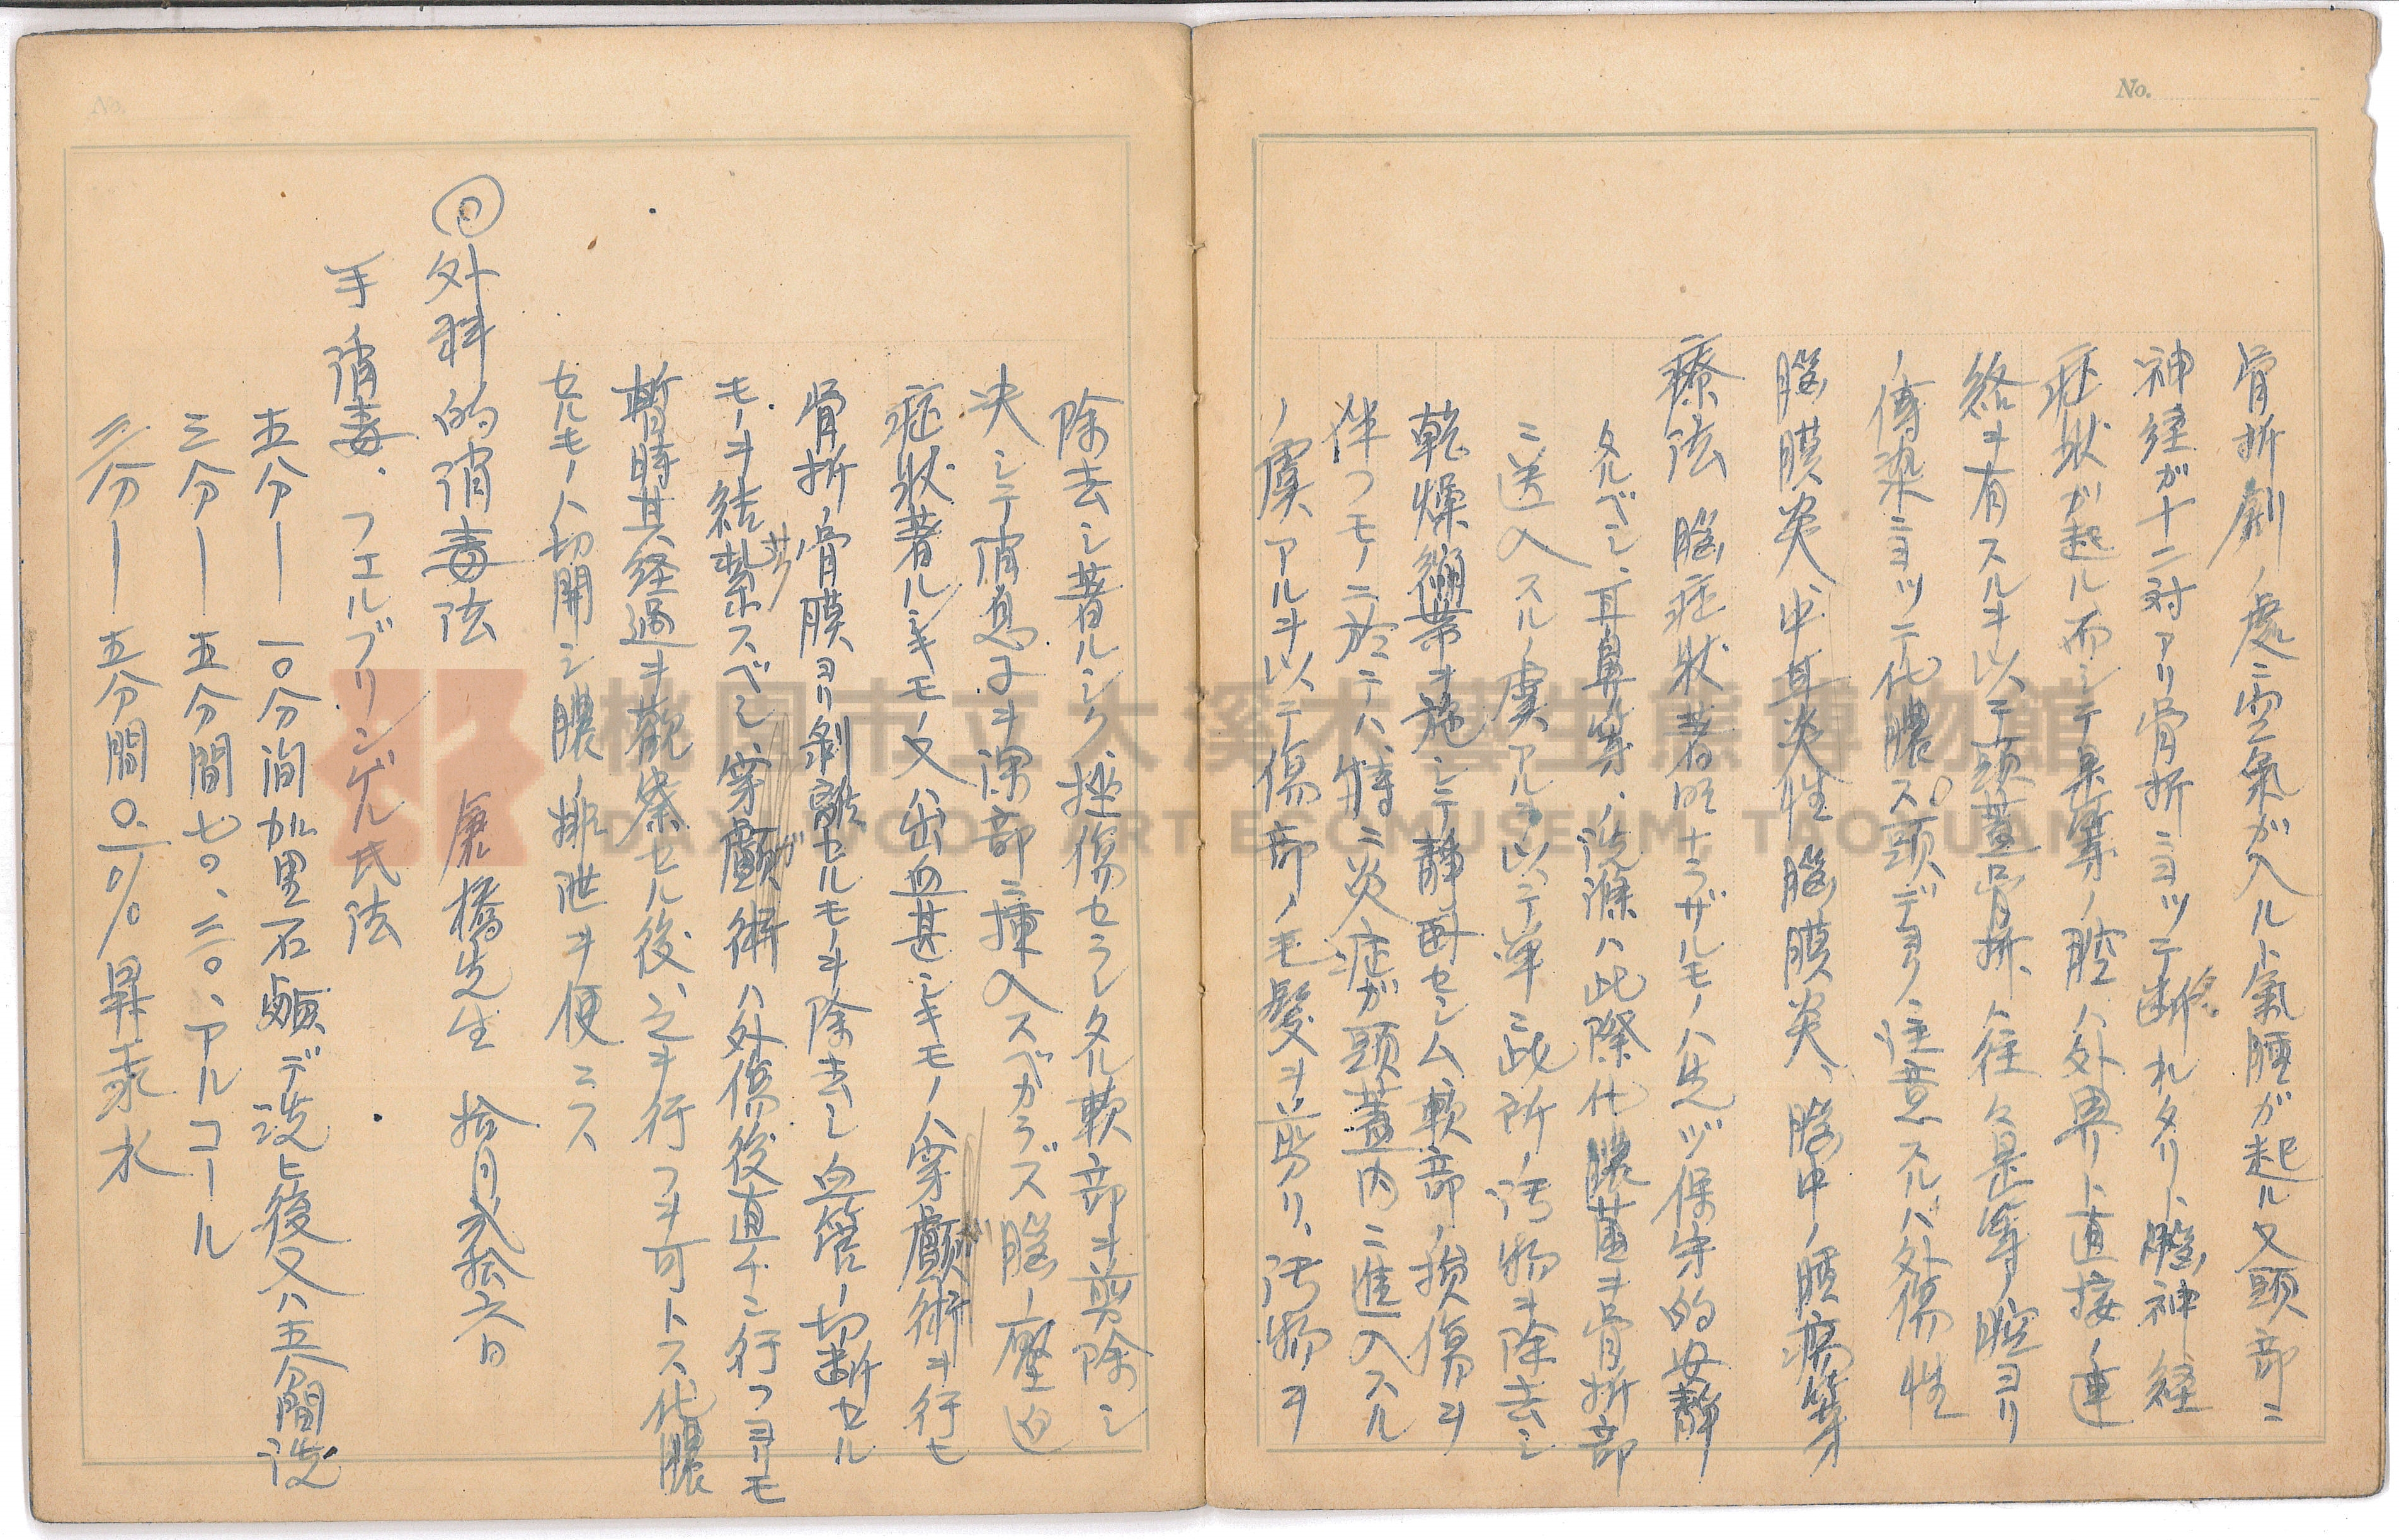 No.
骨折劇ノ處ニ空氣ガ入ルト氣腫ガ起ル又頭部ニ
神経ガ十二対アリ骨折ニヨッテ断れタリト脳神経
症状ガ起ル而シテ鼻等ノ腔ハ外界ト直接ノ連
絡ヲ有スルヲ以テ頭蓋骨折ハ往々鼻等ノ腔ヨリ
ノ傳染ニヨッテ化膿ス。頭デヨク注意スルハ外傷性
脳膜炎、中耳炎性脳膜炎、脳中ノ腫瘍等
療法 脳症状著明ナラザルモノハ先ヅ保守的安静
タルベシ、耳鼻等ノ洗滌ハ此際化膿菌ヲ骨折部
ニ送入スルノ虞アルヲ以テ単ニ此所ノ汚物ヲ除去シ
乾燥繃帯ヲ施シテ静臥セシム軟部ノ損傷ヲ
伴フモノニ於テハ特ニ炎症ガ頭蓋内ニ進入スル
ノ虞アルヲ以テ傷部ノ毛髪ヲ剪リ、汚物ヲ
No.
除去シ著ルシク挫傷セラレタル軟部ヲ剪除シ
決シテ消息子ヲ深部ニ挿入スベカラズ脳ノ壓迫
症状著ルシキモノ又ハ出血甚シキモノハ穿顱術ヲ行ヒ
骨折ノ骨膜ヨリ剥離セルモノヲ除去し血管ノ切断セル
モノヲ結紮スベシ、穿顱術ハ外傷後直チニ行フヨリモ
暫時其ノ経過ヲ観察セル後、之ヲ行フヲ可トス化膿
セルモノハ切開シ膿ノ排泄ヲ便ニス
外科的消毒法 康橋先生 拾月弐拾六日
手ノ消毒、フェルブリンゲル氏法
五分ー一〇分間加里石鹸デ洗ヒ後又ハ五分間洗
三分ー五分間七〇、三〇、アルコール
三分ー五分間〇.一%昇汞水
桃園市立大溪木藝生態博物館
DAXI WOOD ART ECOMUSEUM, TAOYUAN